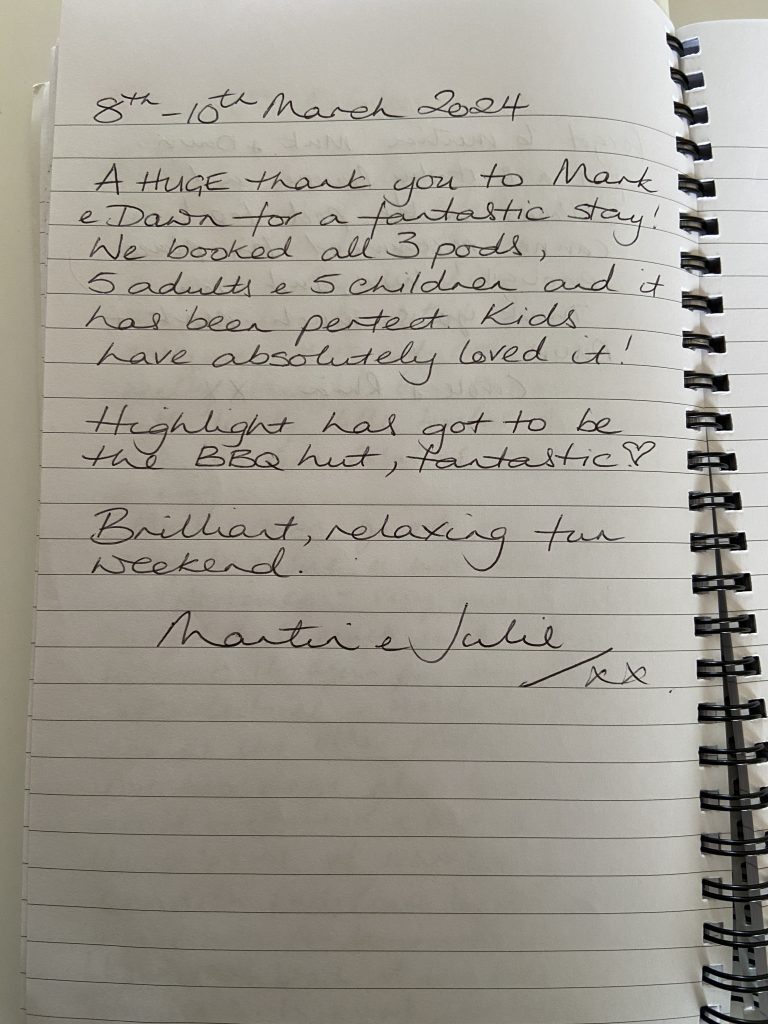 8th - 10th March 2024
A HUGE thank you to Mark
& Dawn for a fantastic stay!
We booked all 3 pods,
5 adults & 5 children and it
has been perfect. Kids
have absolutely loved it!
Highlight has got to be
the BBQ hut, fantastic ♡
Brilliant, relaxing fun
weekend.
Martin & Julie
xx